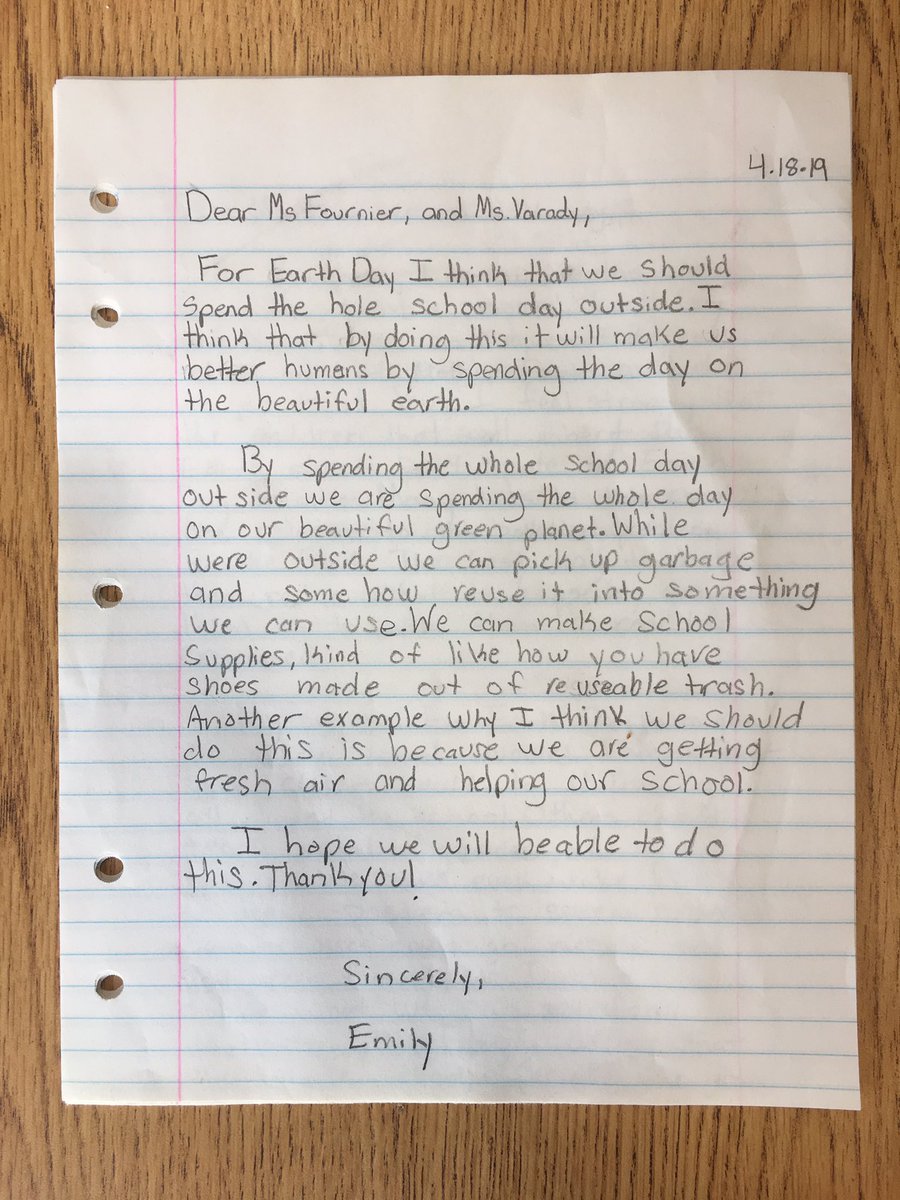 4.18.19
Dear Ms Fournier, and Ms. Varady,
For Earth Day I think that we should
spend the hole school day outside. I
think that by doing this it will make us
better humans by spending the day on
the beautiful earth.
By spending the whole school day
out side we are spending the whole day
on our beautiful green planet. While
were outside we can pick up garbage
and some how reuse it into something
we can use. We can make school
supplies, kind of like how you have
shoes made out of reuseable trash.
Another example why I think we should
do this is because we are getting
fresh air and helping our school.
I hope we will beable to do
this. Thank you!
Sincerely,
Emily